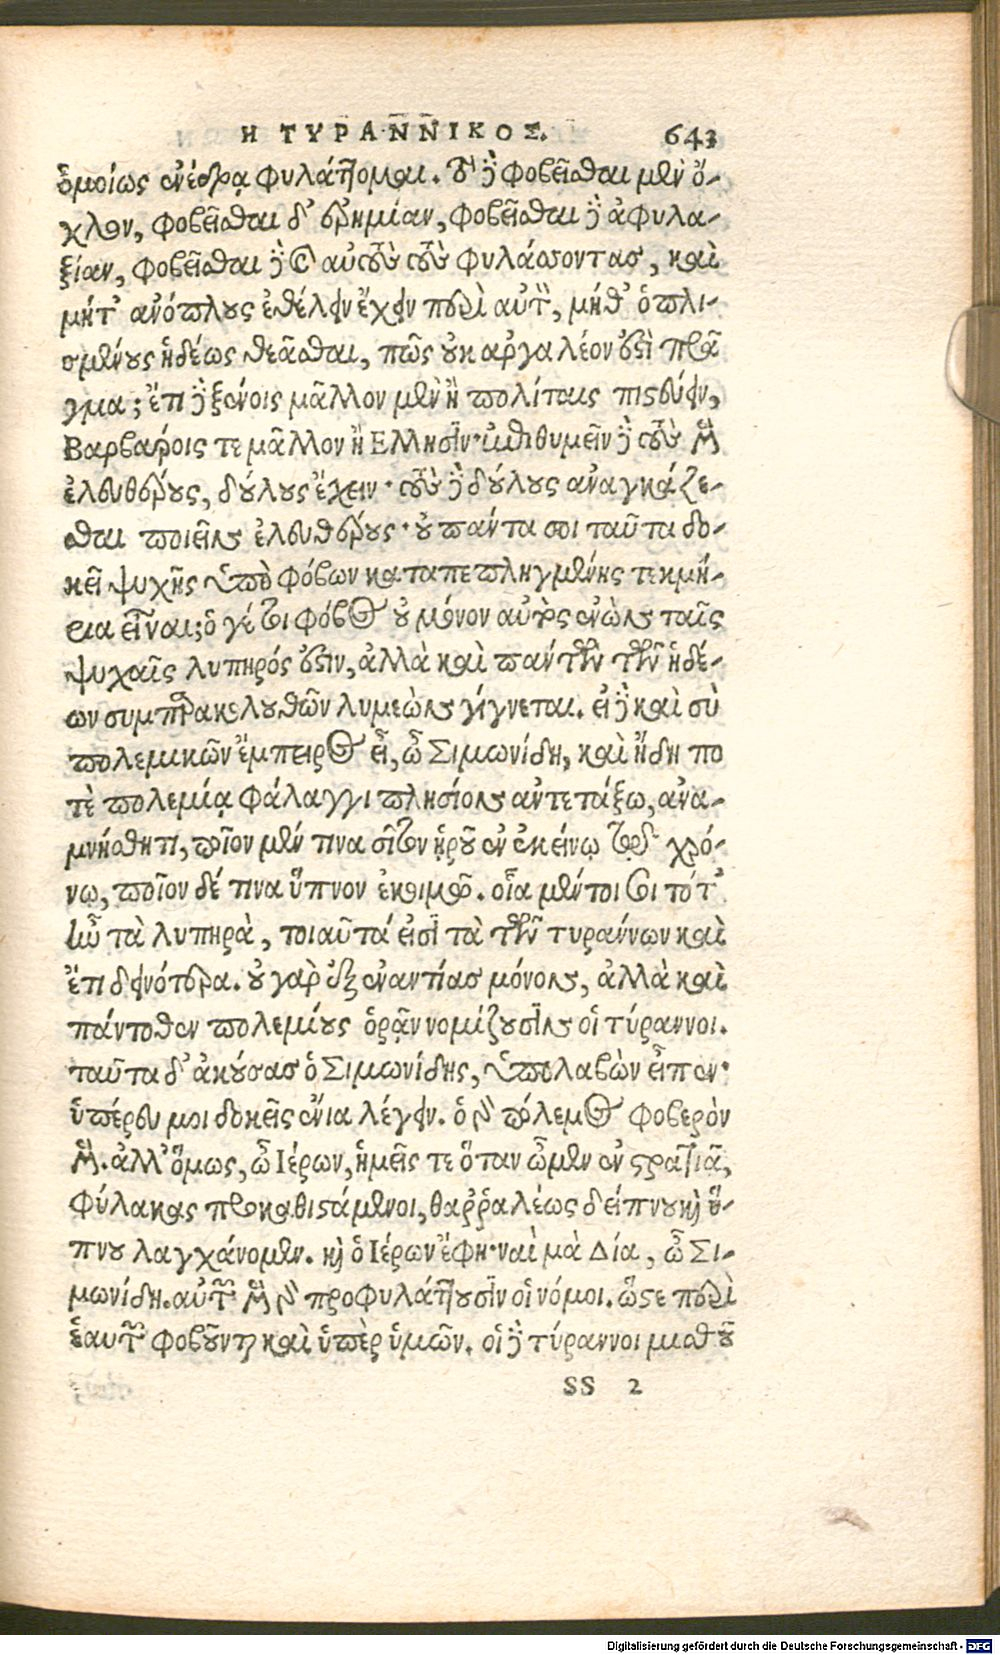 Η ΤΥΡΑΝΝΙΚΟΣ. 643
ὁμοίως ἐνέδρᾳ φυλάττομαι. τὸ δὲ φοβεῖσθαι μὲν ὄ-
χλον, φοβεῖσθαι δ' ἐρημίαν, φοβεῖσθαι δὲ ἀφυλα-
ξίαν, φοβεῖσθαι δὲ καὶ αὐτοὺς τοὺς φυλάσσοντας, καὶ
μήτ' ἀνόπλους ἐθέλειν ἔχειν περὶ αὐτὸν, μήθ' ὁπλι-
σμένους ἡδέως θεᾶσθαι, πῶς οὐκ ἀργαλέον ἐστὶ πρᾶ
γμα; ἔτι δὲ ξένοις μᾶλλον μὲν ἢ πολίταις πιστεύειν,
Βαρβάροις τε μᾶλλον ἢ Ἕλλησιν· ἐπιθυμεῖν δὲ τοὺς μὲν
ἐλευθέρους, δούλους ἔχειν· τοὺς δὲ δούλους ἀναγκάζε-
σθαι ποιεῖν ἐλευθέρους· οὐ πάντα σοι ταῦτα δο-
κεῖ ψυχῆς ὑπὸ φόβων καταπεπληγμένης τεκμή-
ρια εἶναι; ὁ γέ τοι φόβος οὐ μόνον αὐτὸς ἐνὼν ταῖς
ψυχαῖς λυπηρός ἐστιν, ἀλλὰ καὶ πάντων τῶν ἡδέ-
ων συμπαρακολουθῶν λυμεὼν γίγνεται. εἰ δὲ καὶ σὺ
πολεμικῶν ἔμπειρος εἶ, ὦ Σιμωνίδη, καὶ ἤδη πο
τὲ πολεμίᾳ φάλαγγι πλησίον ἀντετάξω, ἀνα-
μνήσθητι, ποῖον μέν τινα σῖτον ᾑροῦ ἐν ἐκείνῳ τῷ χρό-
νῳ, ποῖον δέ τινα ὕπνον ἐκοιμῶ. οἷα μέντοι σοι τότ'
ἦν τὰ λυπηρὰ, τοιαῦτά εἰσι τὰ τῶν τυράννων καὶ
ἔτι δεινότερα. οὐ γὰρ ἐξ ἐναντίας μόνον, ἀλλὰ καὶ
πάντοθεν πολεμίους ὁρᾷν νομίζουσιν οἱ τύραννοι.
ταῦτα δ' ἀκούσας ὁ Σιμωνίδης, ὑπολαβὼν εἶπεν·
ὑπέρευ μοι δοκεῖς ἔνια λέγειν. ὁ γὰρ πόλεμος φοβερὸν
μέν. ἀλλ' ὅμως, ὦ Ἱέρων, ἡμεῖς τε ὅταν ὦμεν ἐν στρατιᾷ,
φύλακας προκαθιστάμενοι, θαῤῥαλέως δείπνου καὶ ὕ-
πνου λαγχάνομεν. καὶ ὁ Ἱέρων ἔφη· ναὶ μὰ Δία, ὦ Σι-
μωνίδη. αὐτῶν μὲν γὰρ προφυλάττουσιν οἱ νόμοι. ὥστε περὶ
ἑαυτῶν φοβοῦνται καὶ ὑπὲρ ὑμῶν. οἱ δὲ τύραννοι μισθοῦ
SS 2
Digitalisierung gefördert durch die Deutsche Forschungsgemeinschaft - DFG